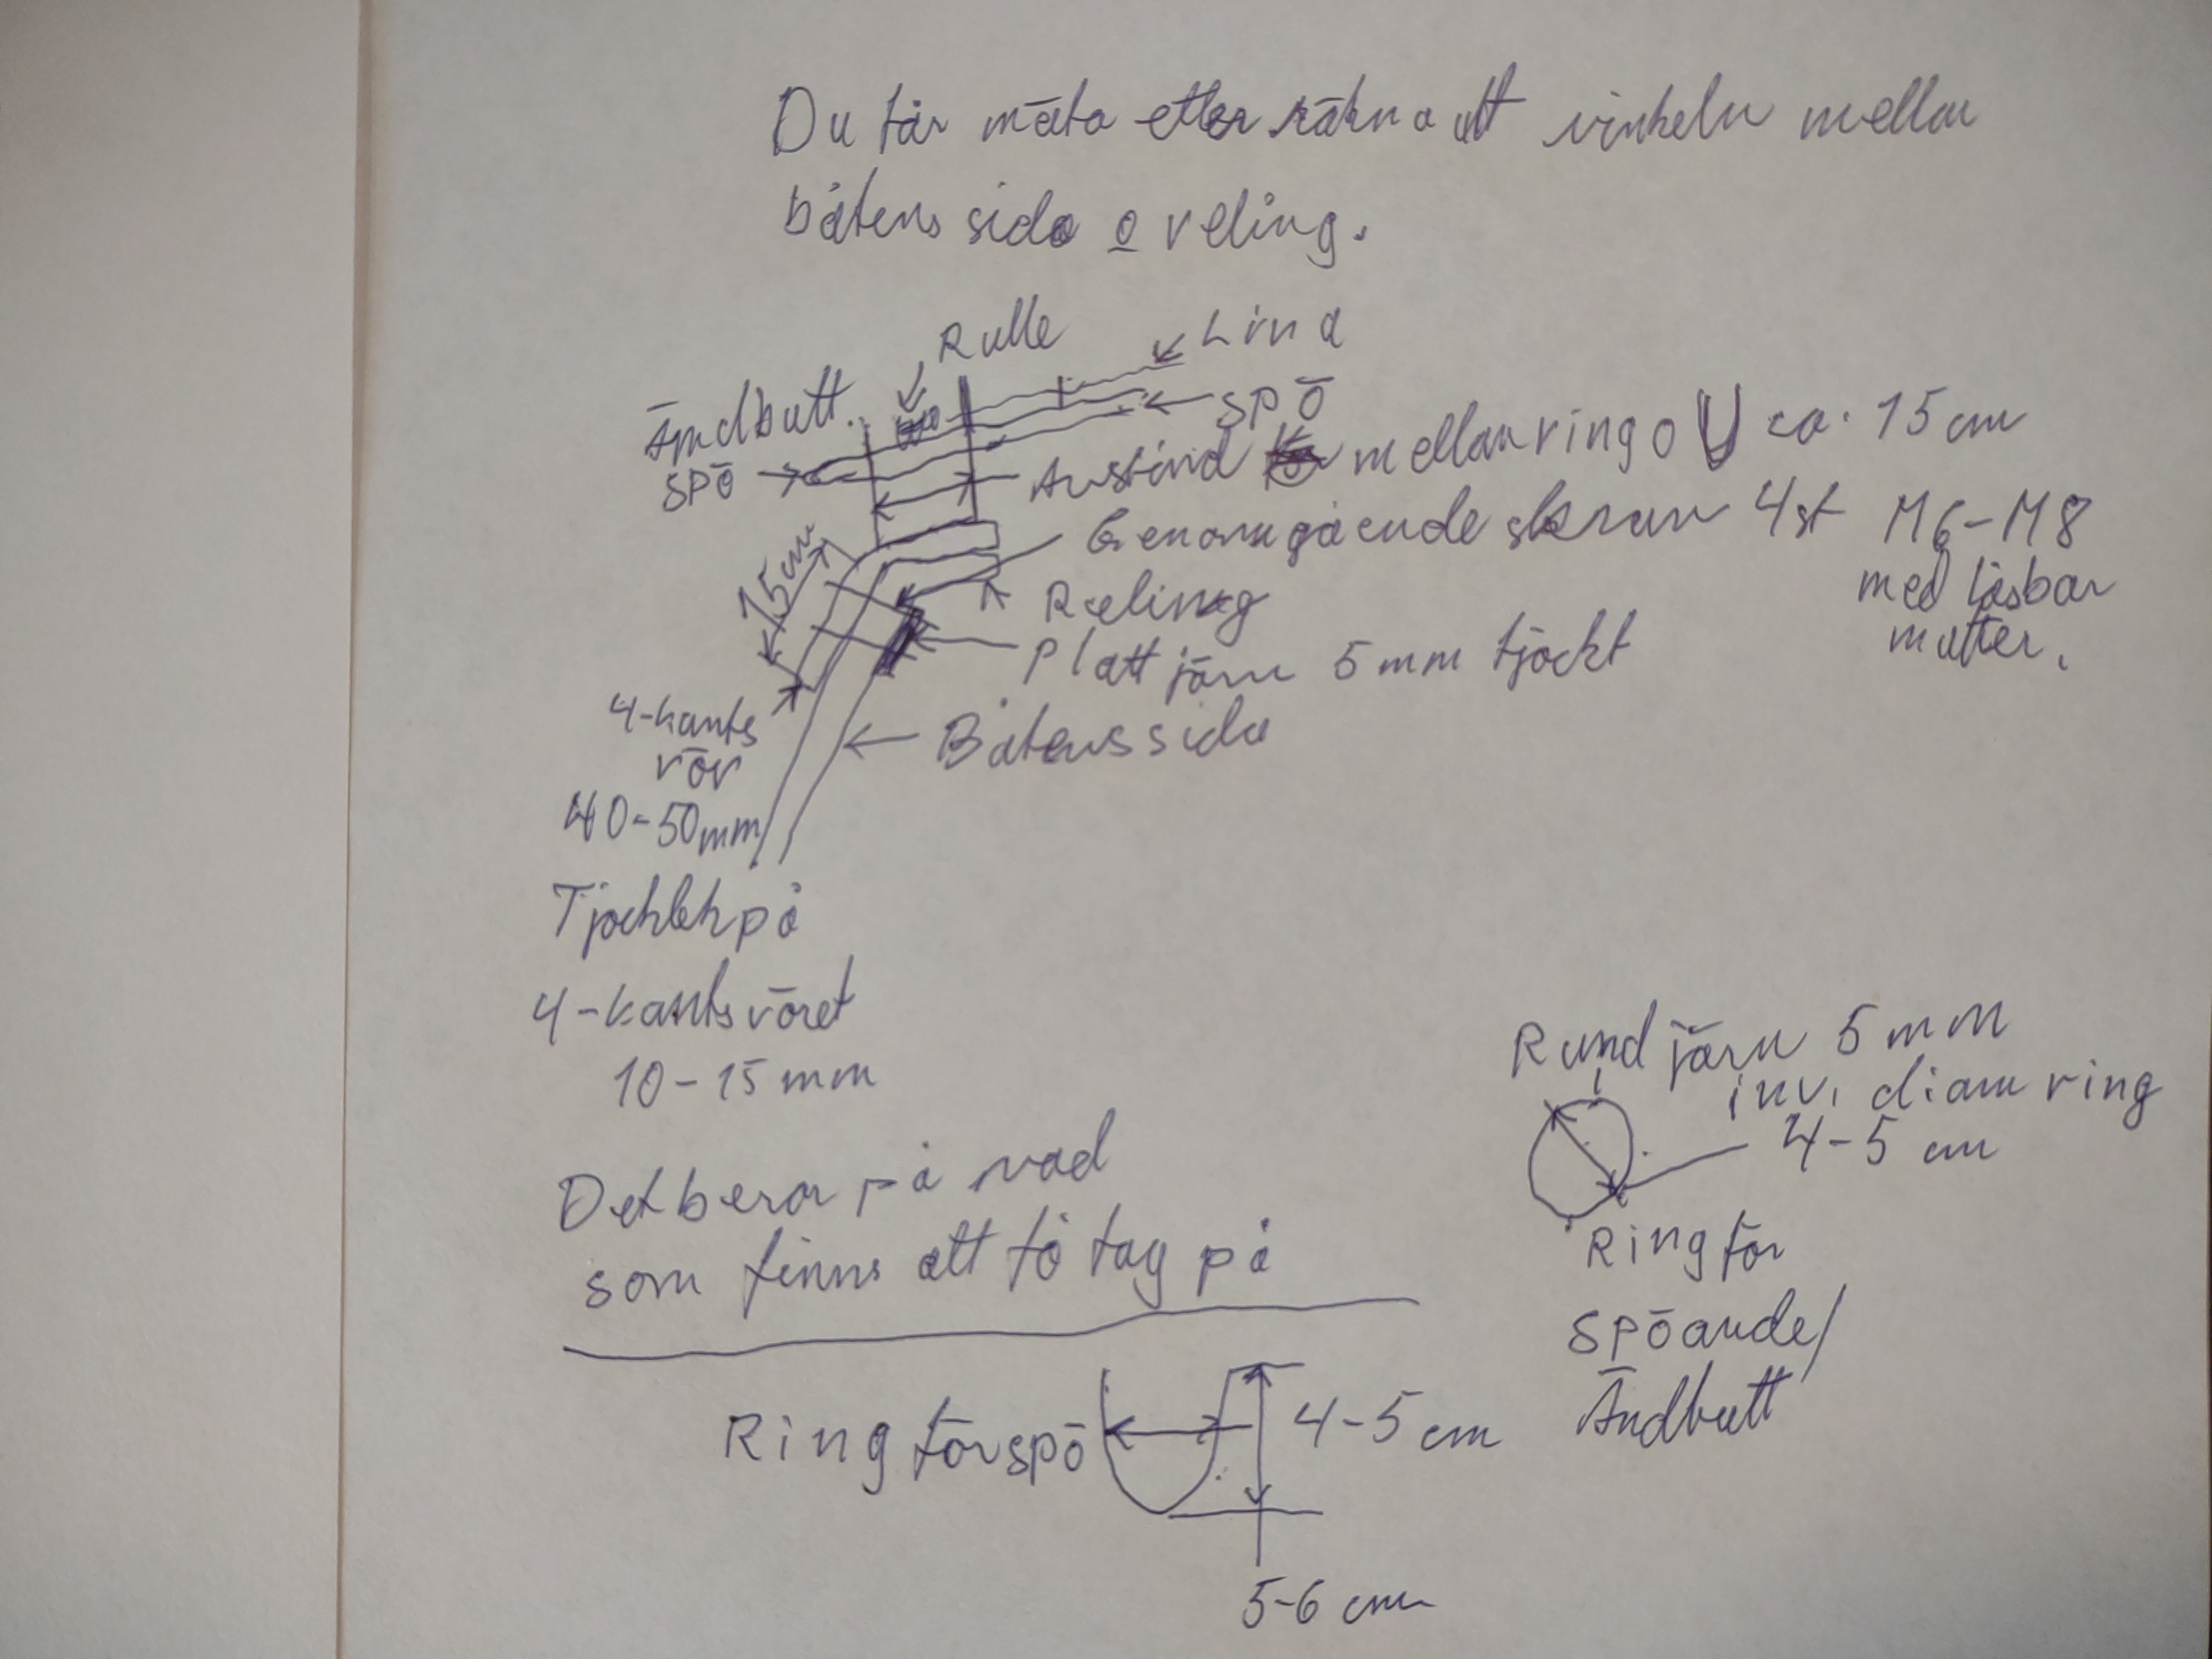 Du får mäta eller räkna ut vinkeln mellan
båtens sida o reling.
Rulle
Lina
Ändbutt.
SPÖ
SPÖ
Avstånd mellan ring o U ca. 15 cm
Genomgående skruv 4st M6-M8
med låsbar
mutter.
15cm
Reling
Plattjärn 5 mm tjockt
4-kants
rör
40-50mm
Båtens sida
Tjocklek på
4-kantsröret
10-15 mm
Det beror på vad
som finns att få tag på
Rundjärn 5 mm
inv. diam ring
4-5 cm
Ring för
spöände/
Ändbutt
Ring för spö
4-5 cm
5-6 cm